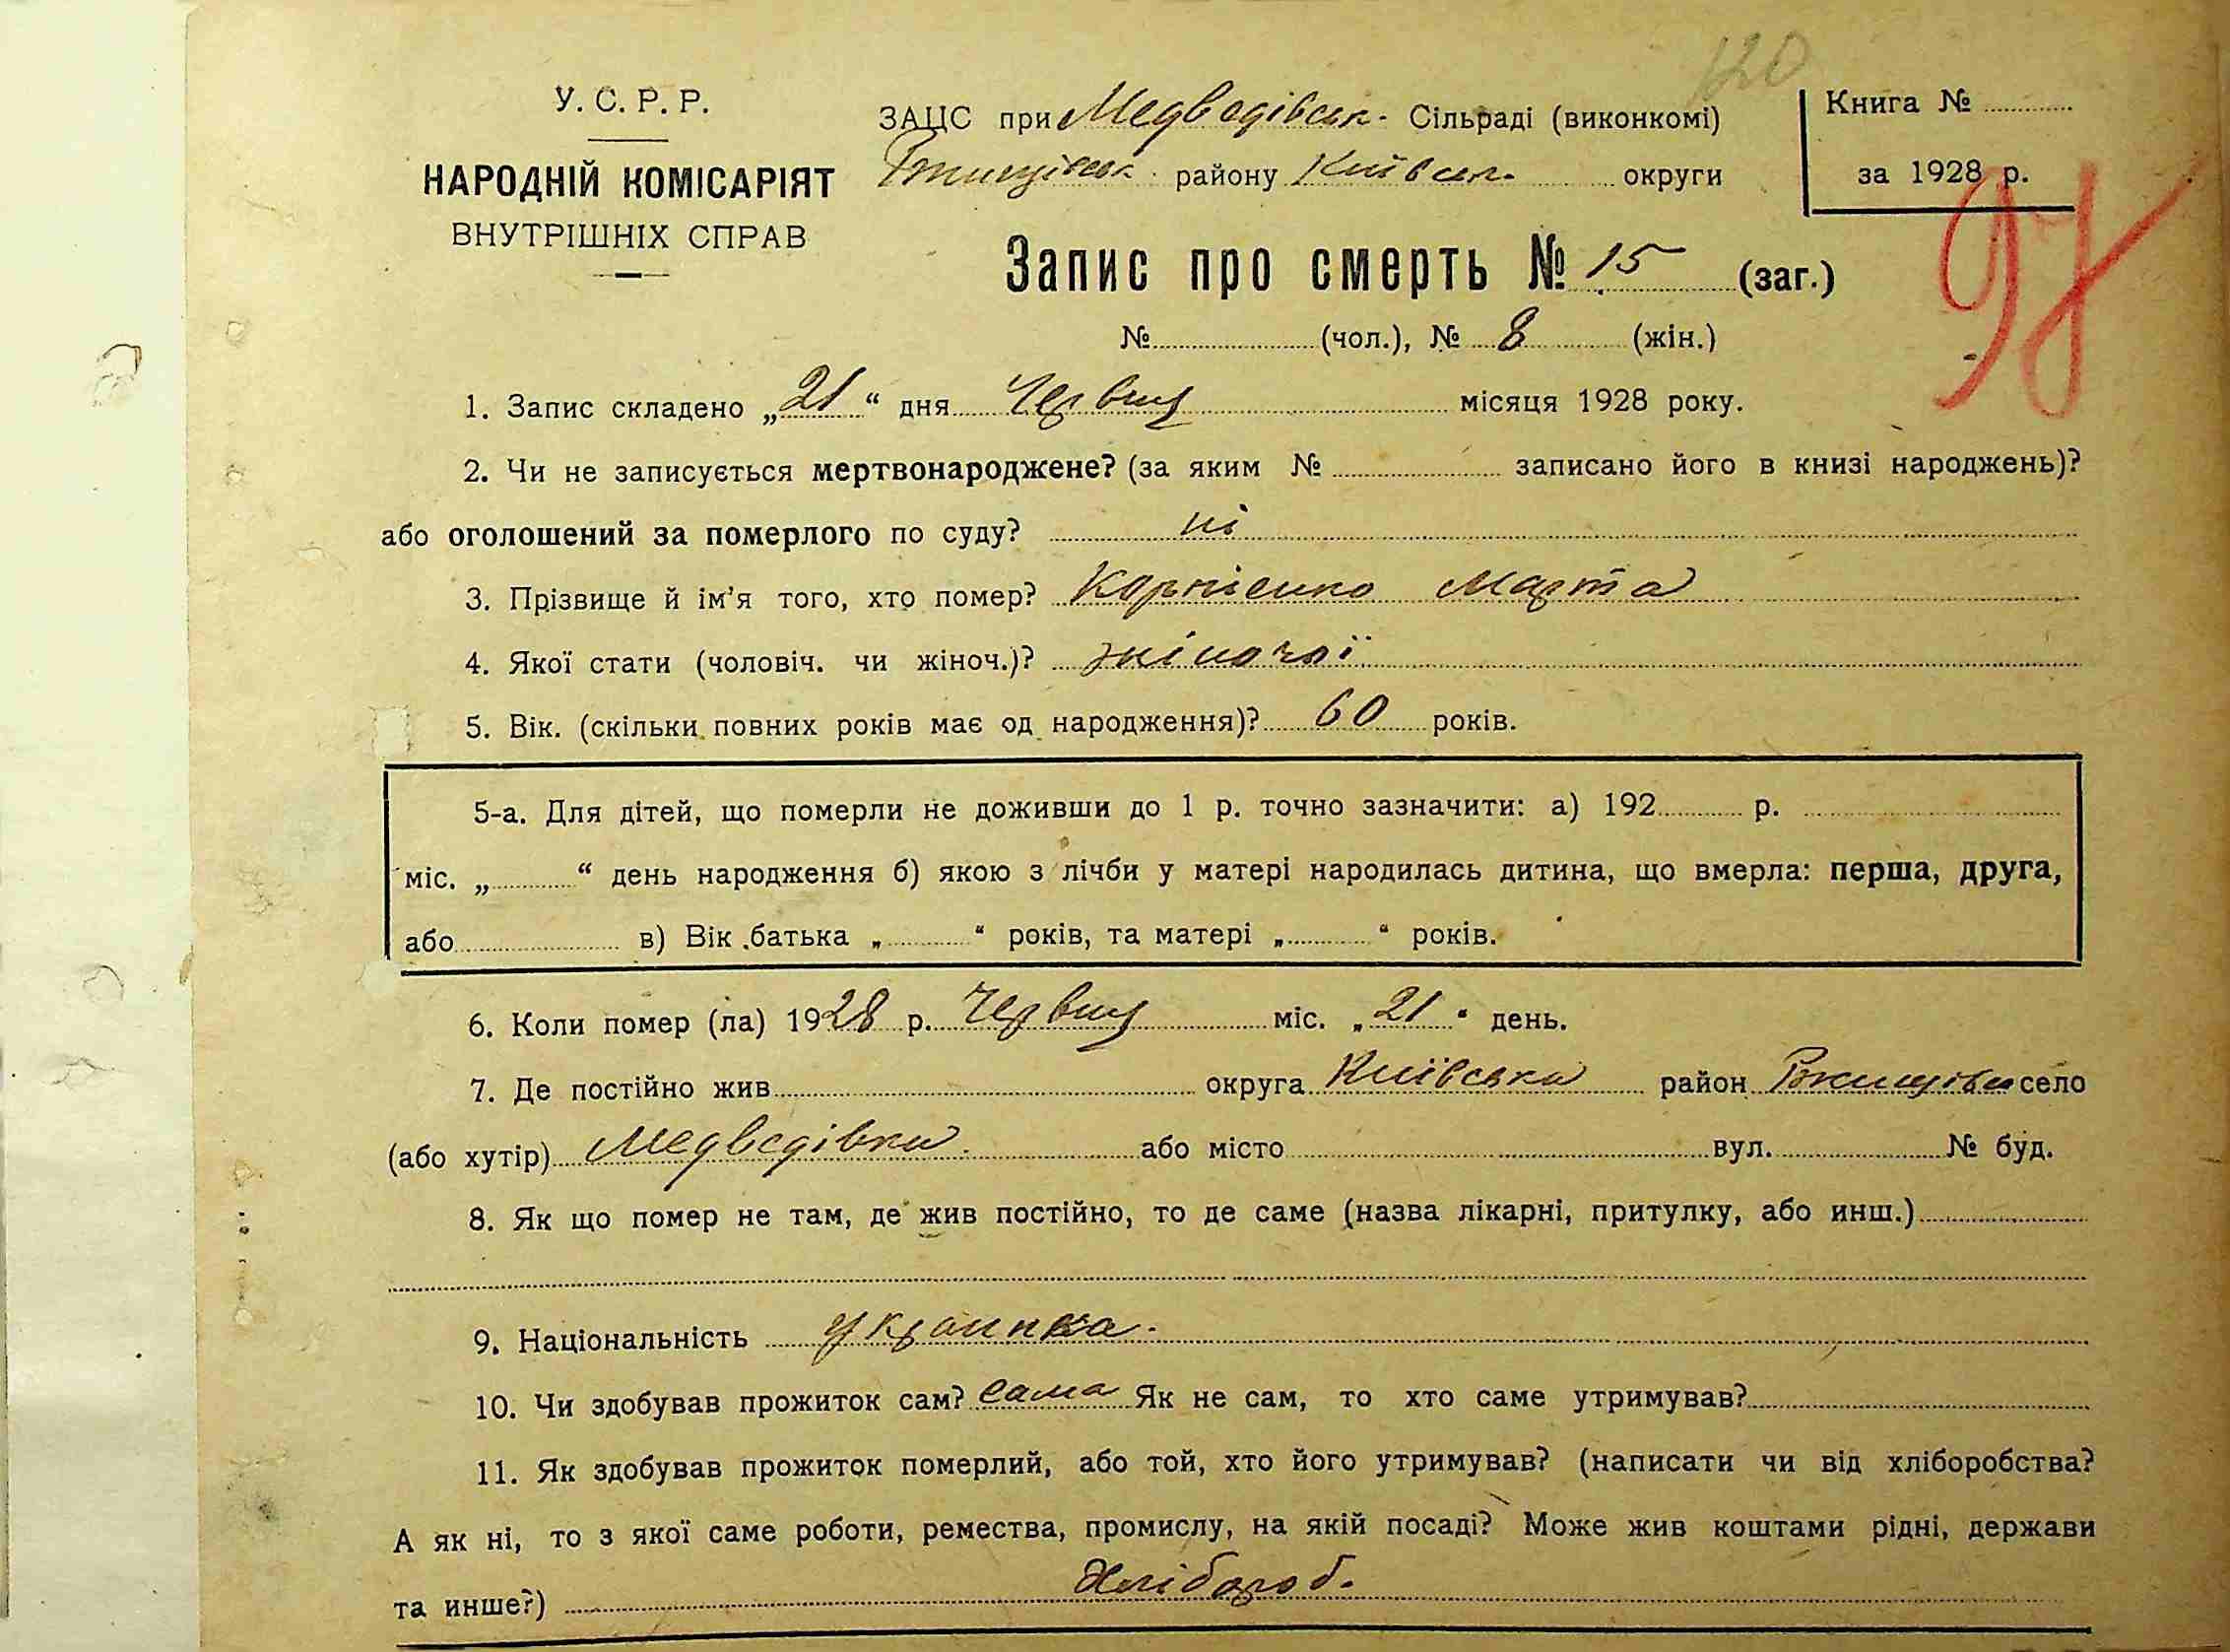 120
У. С. Р. Р.
НАРОДНІЙ КОМІСАРІЯТ
ВНУТРІШНІХ СПРАВ
ЗАЦС при Медведівськ. Сільраді (виконкомі)
Ржищівськ. району Київськ. округи
Книга №
за 1928 р.
Запис про смерть № 15 (заг.)
№ (чол.), № 8 (жін.)
1. Запис складено „21“ дня Червня місяця 1928 року.
2. Чи не записується мертвонароджене? (за яким № записано його в книзі народжень)?
або оголошений за померлого по суду? ні
3. Прізвище й ім'я того, хто помер? Корнієнко Марта
4. Якої стати (чоловіч. чи жіноч.)? жіночої
5. Вік. (скільки повних років має од народження)? 60 років.
5-а. Для дітей, що померли не доживши до 1 р. точно зазначити: а) 192 р.
міс. „ “ день народження б) якою з лічби у матері народилась дитина, що вмерла: перша, друга,
або в) Вік батька „ “ років, та матері „ “ років.
6. Коли помер (ла) 1928 р. Червня міс. „21“ день.
7. Де постійно жив округа Київська район Ржищівськ село
(або хутір) Медведівка. або місто вул. № буд.
8. Як що помер не там, де жив постійно, то де саме (назва лікарні, притулку, або инш.)
9. Національність українка.
10. Чи здобував прожиток сам? сама Як не сам, то хто саме утримував?
11. Як здобував прожиток померлий, або той, хто його утримував? (написати чи від хліборобства?
А як ні, то з якої саме роботи, ремества, промислу, на якій посаді? Може жив коштами рідні, держави
та инше?) Хлібороб.